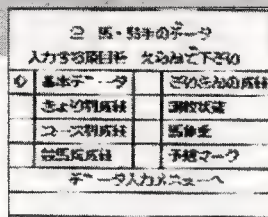 ② 馬・騎手のデータ
入力する項目を えらんで下さい
◇ 基本データ さいきんの成績
きょり別成績 調教状態
コース別成績 馬体重
競馬成績 予想マーク
データ入力メニューへ